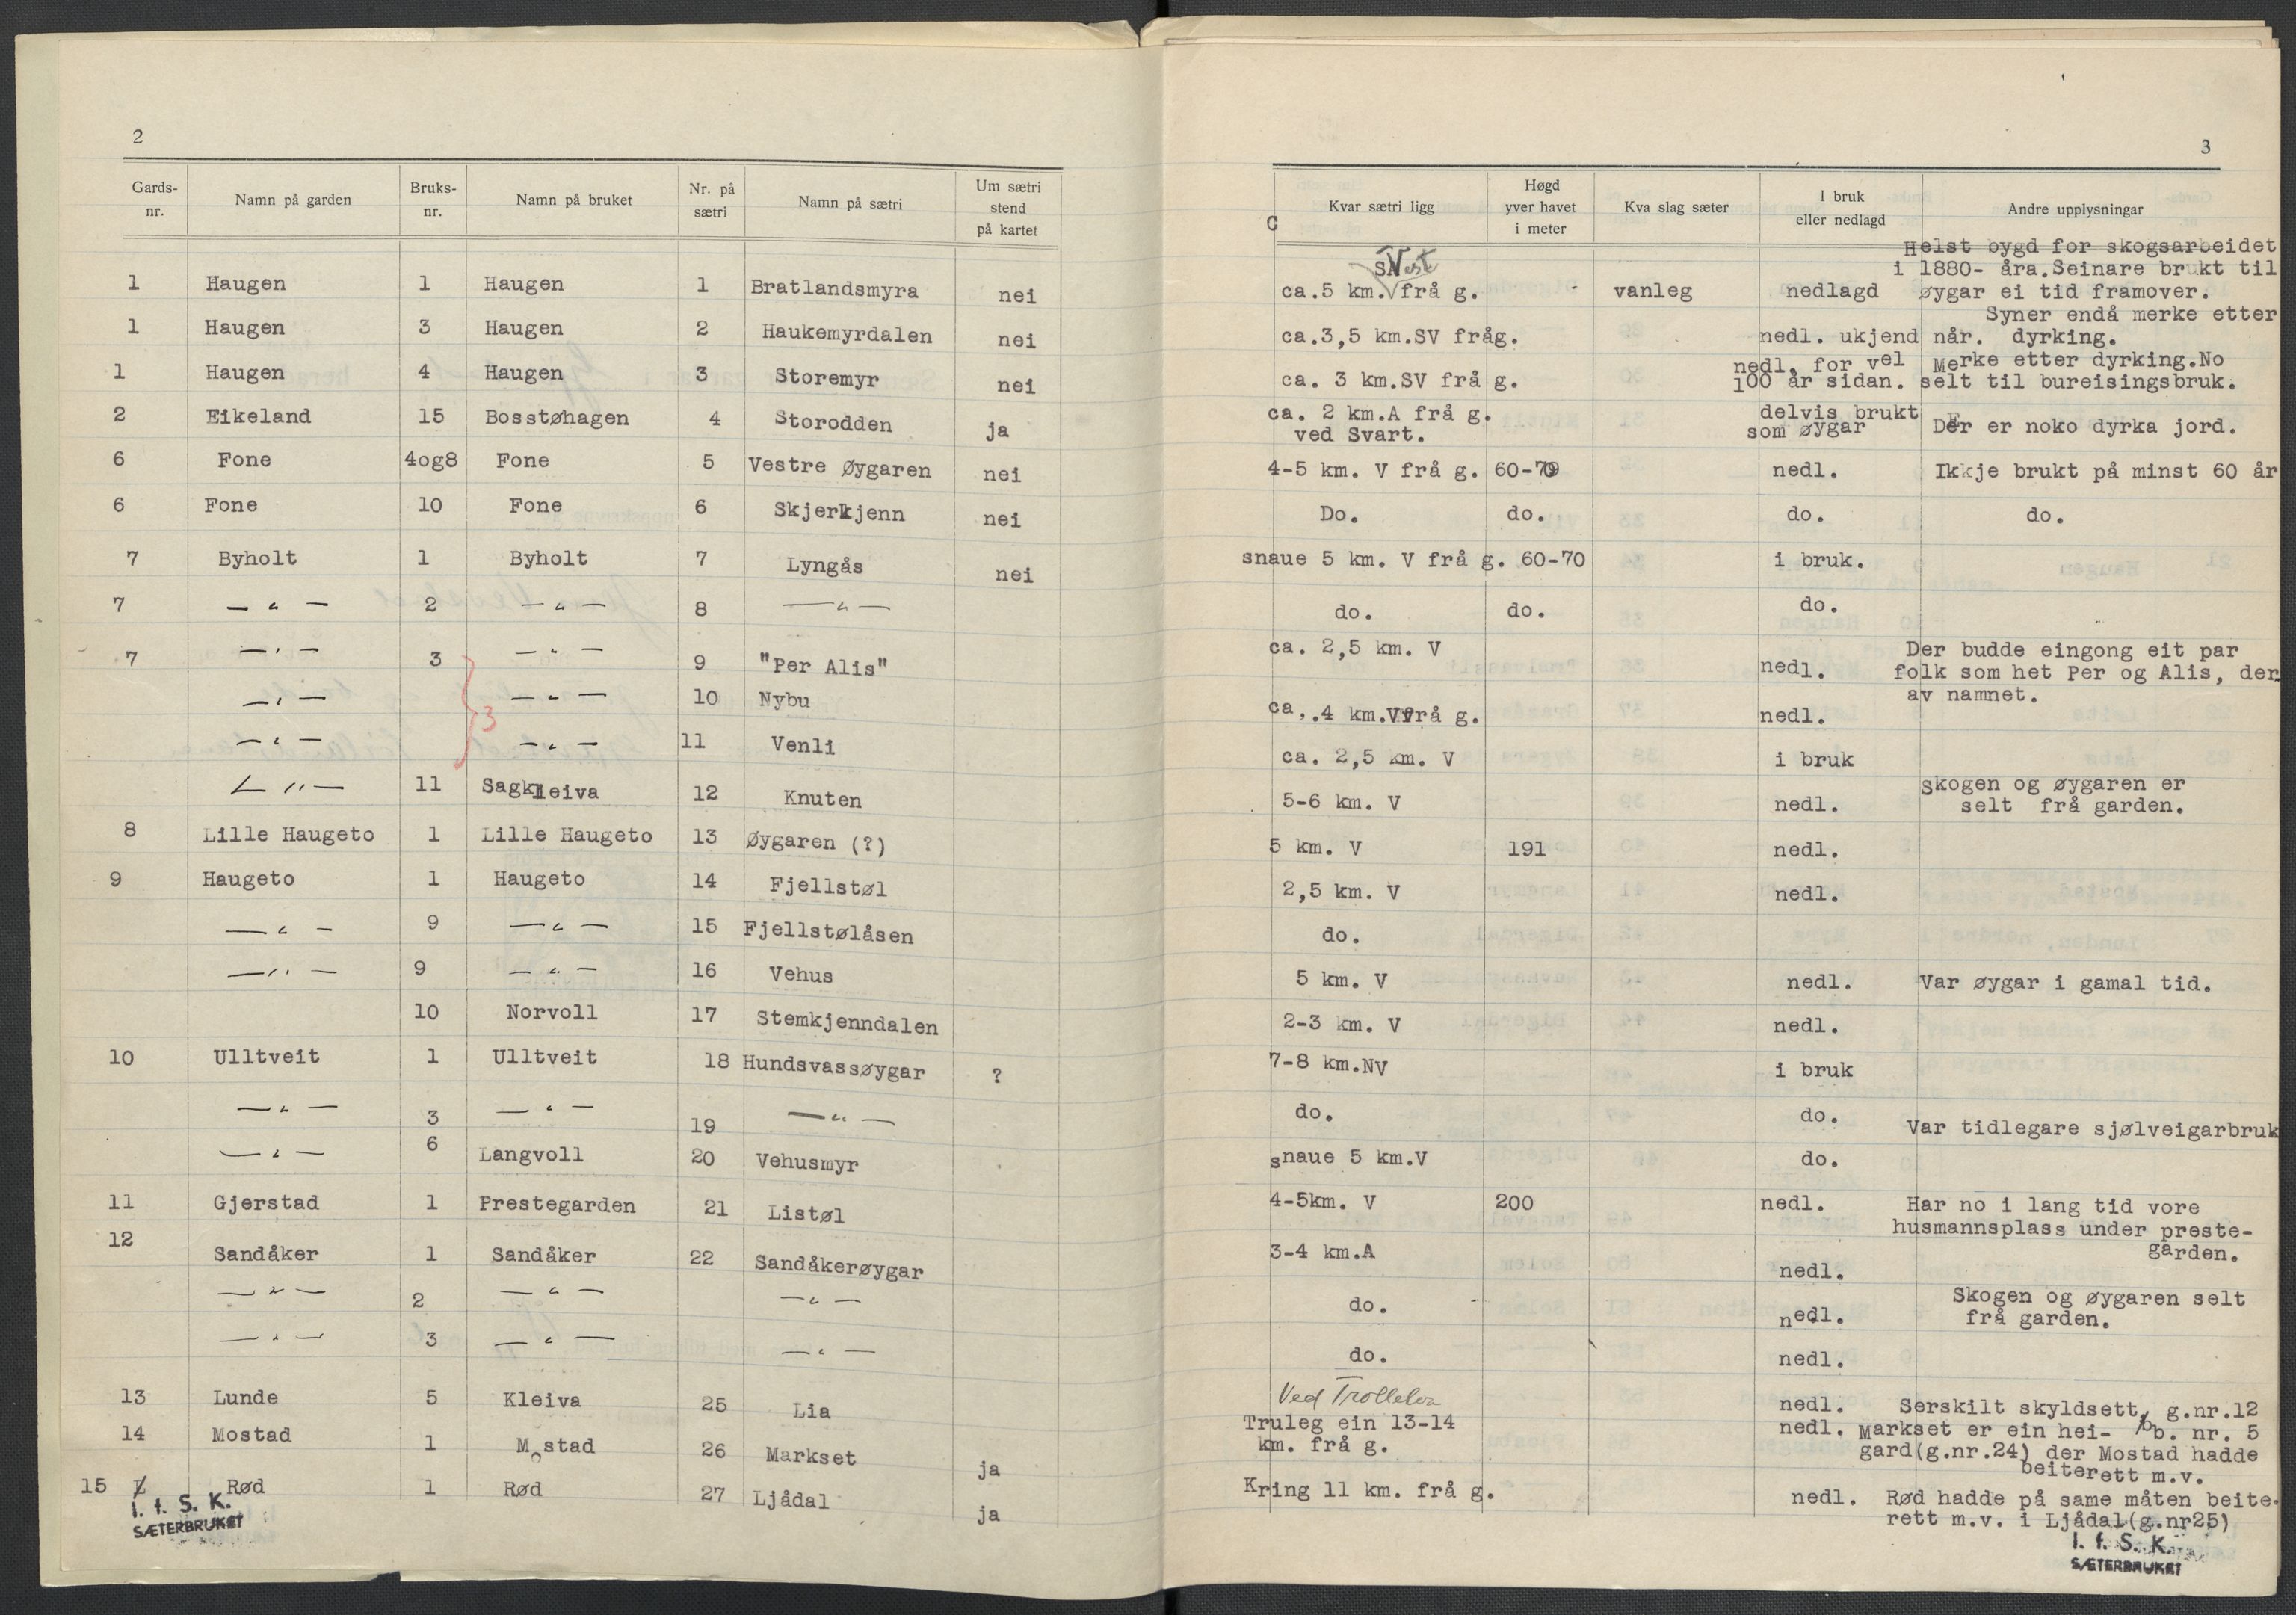 2
Gards-nr. Namn på garden Bruks-nr. Namn på bruket Nr. på sætri Namn på sætri Um sætri stend på kartet
1 Haugen 1 Haugen 1 Bratlandsmyra nei
1 Haugen 3 Haugen 2 Haukemyrdalen nei
1 Haugen 4 Haugen 3 Storemyr nei
2 Eikeland 15 Bosstøhagen 4 Storodden ja
6 Fone 4og8 Fone 5 Vestre Øygaren nei
6 Fone 10 Fone 6 Skjerkjenn nei
7 Byholt 1 Byholt 7 Lyngås nei
7 — " — 2 — " — 8 — " —
7 — " — 3 — " — 9 "Per Alis"
— " — — " — 10 Nybu
3
— " — — " — 11 Venli
— " — 11 Sagkleiva 12 Knuten
8 Lille Haugeto 1 Lille Haugeto 13 Øygaren (?)
9 Haugeto 1 Haugeto 14 Fjellstøl
— " — 9 — " — 15 Fjellstølåsen
— " — 9 — " — 16 Vehus
10 Norvoll 17 Stemkjenndalen
10 Ulltveit 1 Ulltveit 18 Hundsvassøygar ?
— " — 3 — " — 19 — " —
— " — 6 Langvoll 20 Vehusmyr
11 Gjerstad 1 Prestegarden 21 Listøl
12 Sandåker 1 Sandåker 22 Sandåkerøygar
— " — 2 — " — — " —
— " — 3 — " — — " —
13 Lunde 5 Kleiva 25 Lia
14 Mostad 1 Mostad 26 Markset ja
15 Rød 1 Rød 27 Ljådal ja
I. f. S. K.
SÆTERBRUKET
3
Kvar sætri ligg Høgd yver havet i meter Kva slag sæter I bruk eller nedlagd Andre upplysningar
C
Helst bygd for skogsarbeidet
Vest i 1880- åra. Seinare brukt til
ca.5 km. frå g. vanleg nedlagd øygar ei tid framover.
Syner endå merke etter
ca.3,5 km.SV fråg. nedl. ukjend når. dyrking.
nedl. for vel Merke etter dyrking.No
ca. 3 km.SV frå g. 100 år sidan. selt til bureisingsbruk.
ca. 2 km.A frå g. delvis brukt
ved Svart. som øygar Der er noko dyrka jord.
4-5 km. V frå g. 60-70 nedl. Ikkje brukt på minst 60 år
Do. do. do. do.
snaue 5 km. V frå g. 60-70 i bruk.
do. do. do.
ca. 2,5 km. V Der budde eingong eit par
nedl. folk som het Per og Alis, der
av namnet.
ca,.4 km.V frå g. nedl.
ca. 2,5 km. V i bruk
5-6 km. V nedl. skogen og øygaren er
selt frå garden.
5 km. V 191 nedl.
2,5 km. V nedl.
do.
5 km. V nedl. Var øygar i gamal tid.
2-3 km. V nedl.
7-8 km.NV i bruk
do. do.
Var tidlegare sjølveigarbruk
snaue 5 km.V do.
4-5km. V 200 nedl. Har no i lang tid vore
husmannsplass under preste-
garden.
3-4 km.A nedl.
do. nedl. Skogen og øygaren selt
frå garden.
do. nedl.
Ved Trollelva nedl. Serskilt skyldsett, g.nr.12
b. nr. 5
Truleg ein 13-14 nedl. Markset er ein hei-
km. frå g. gard(g.nr.24) der Mostad hadde
beiterett m.v.
Kring 11 km. frå g. nedl. Rød hadde på same måten beite-
rett m.v. i Ljådal(g.nr25)
I. f. S. K.
SÆTERBRUKET